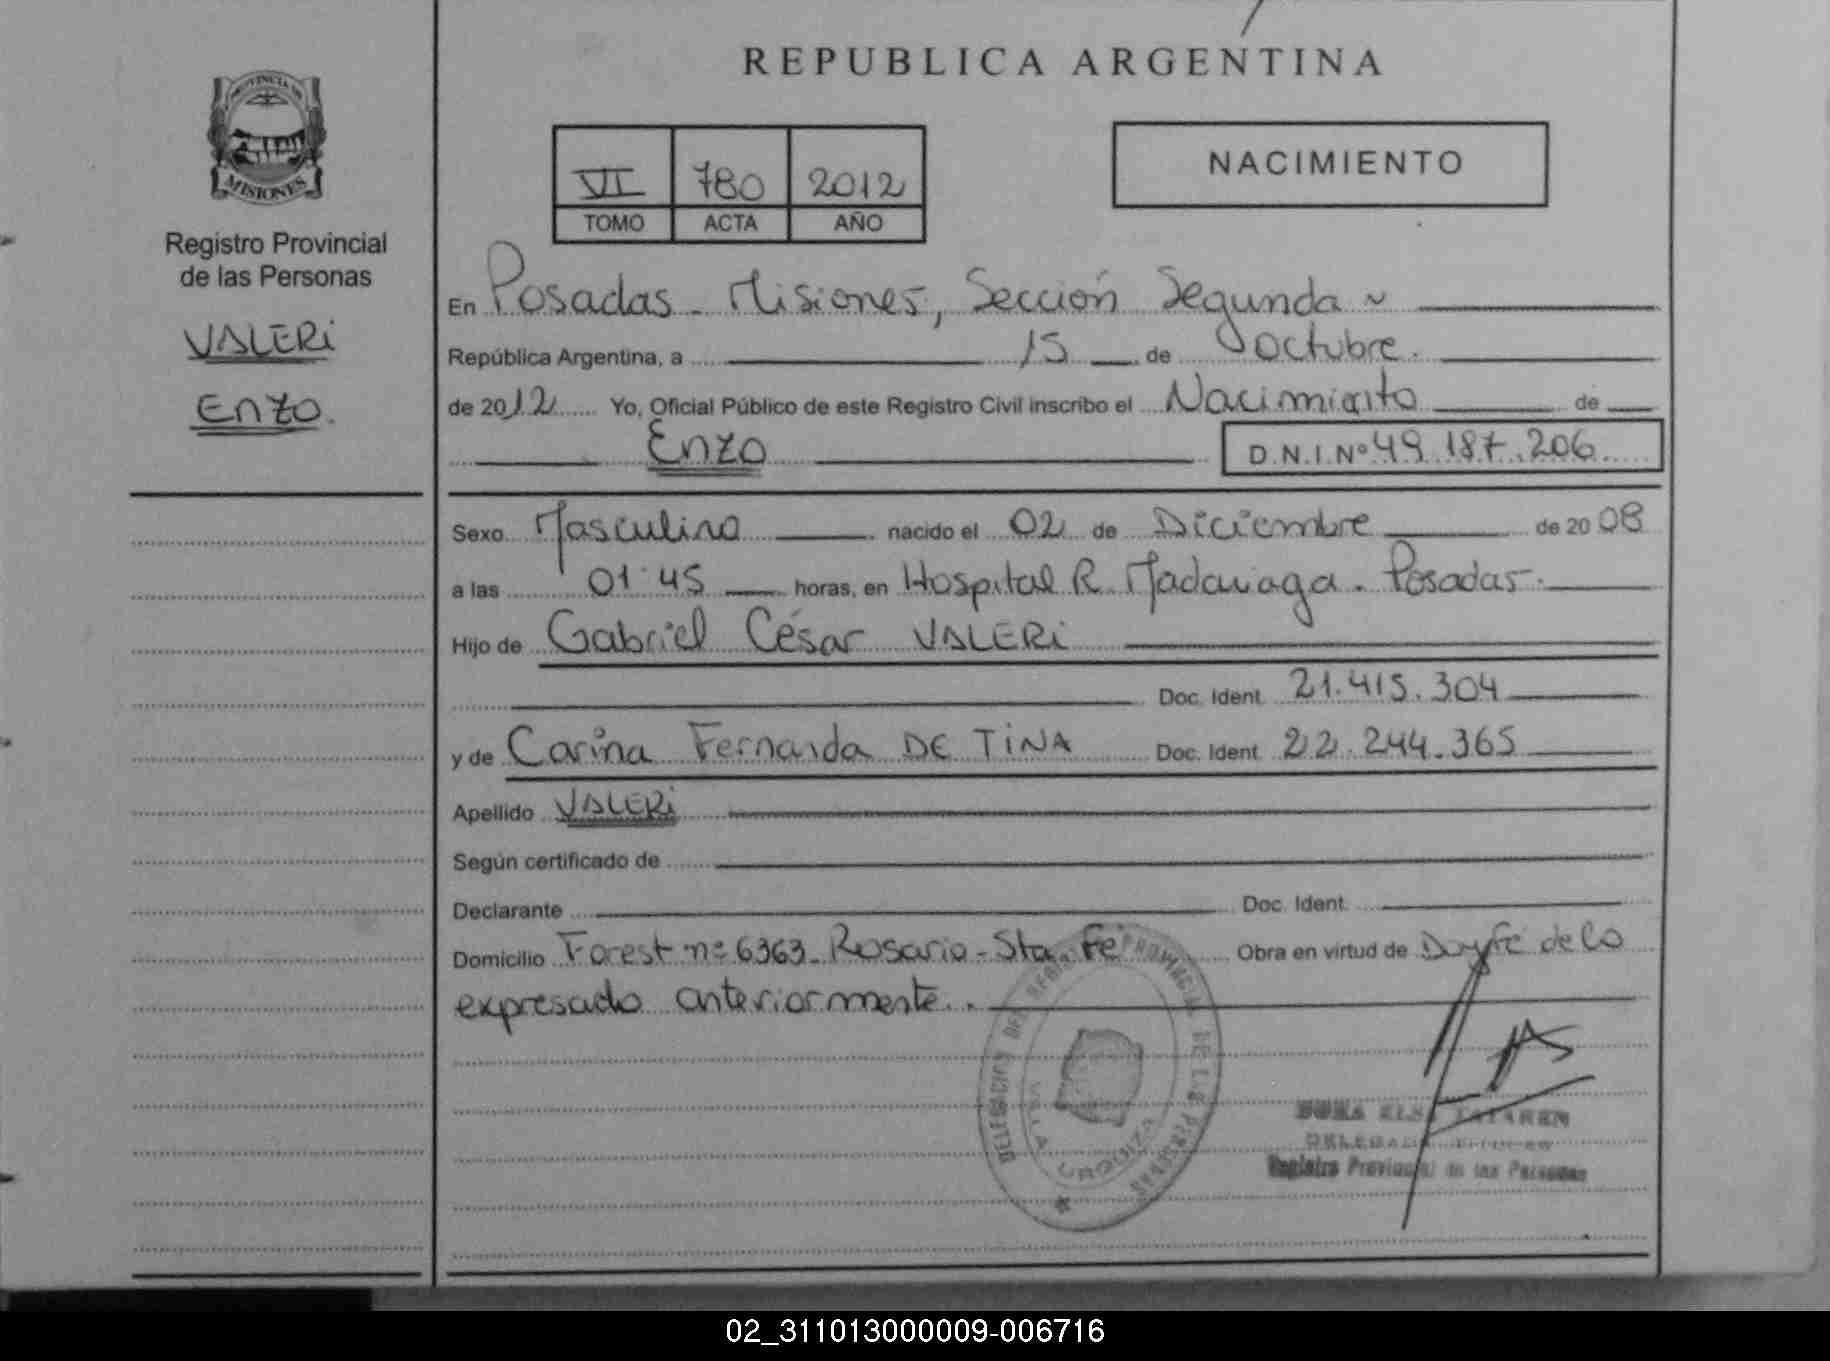 REPUBLICA ARGENTINA
PROVINCIA DE
MISIONES
Registro Provincial
de las Personas
VALERI
Enzo.
VI 780 2012
TOMO ACTA AÑO
NACIMIENTO
En Posadas - Misiones, Sección Segunda ~
República Argentina, a 15 de Octubre.
de 2012 Yo, Oficial Público de este Registro Civil inscribo el Nacimiento de
Enzo D.N.I.Nº 49.187.206
Sexo Masculino nacido el 02 de Diciembre de 2008
a las 01:45 horas, en Hospital R. Madariaga. Posadas.
Hijo de Gabriel César VALERi
Doc. Ident. 21.415.304
y de Carina Fernanda DE TINA Doc. Ident. 22.244.365
Apellido VALERi
Según certificado de
Declarante Doc. Ident.
Domicilio Forest nº 6363 - Rosario - Sta. Fe Obra en virtud de Doy fé de lo
expresado anteriormente.
DELEGACION DEL REGISTRO PROVINCIAL DE LAS PERSONAS
VILLA URQUIZA
Registro Provincial de las Personas
02_311013000009-006716